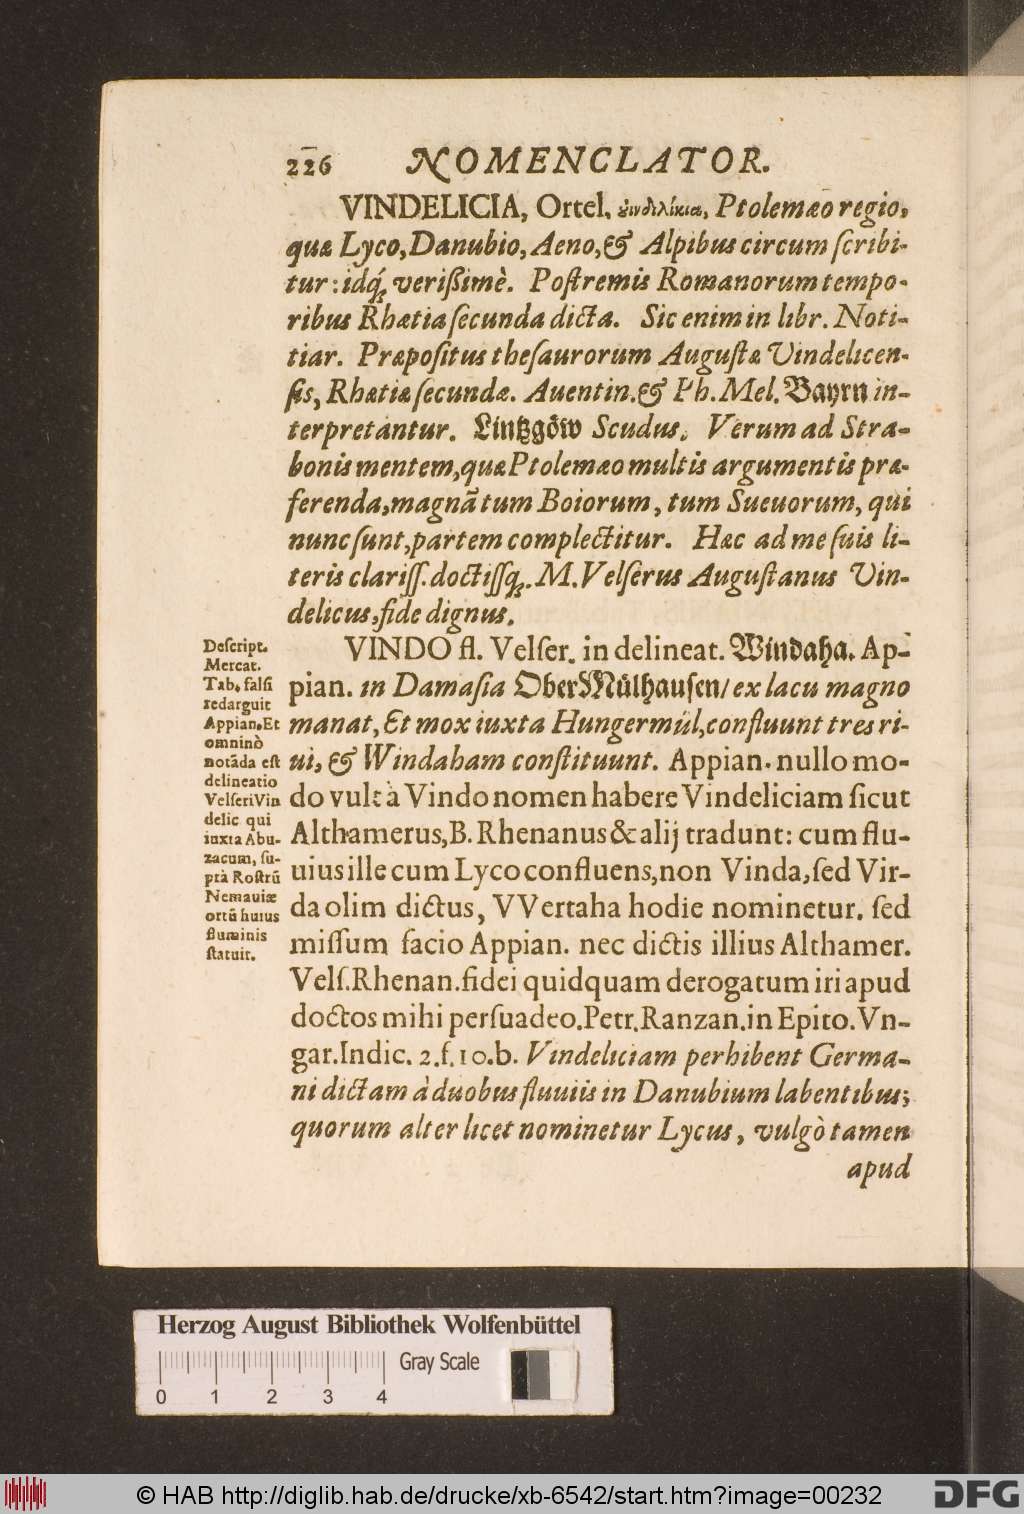 226 NOMENCLATOR.
VINDELICIA, Ortel. ὀυινδελίκια, Ptolemæo regio,
quæ Lyco, Danubio, Aeno, & Alpibus circumſcribi-
tur: idq́; verißimè. Poſtremis Romanorum tempo-
ribus Rhætia ſecunda dicta. Sic enim in libr. Noti-
tiar. Præpoſitus theſaurorum Auguſtæ Vindelicen-
ſis, Rhætiæ ſecundæ. Auentin. & Ph. Mel. Bayrn in-
terpretantur. Lintzgöw Scudus. Verum ad Stra-
bonis mentem, quæ Ptolemæo multis argumentis præ-
ferenda, magnā tum Boiorum, tum Sueuorum, qui
nunc ſunt, partem complectitur. Hæc ad me ſuis li-
teris clariſſ. doctiſſq́;. M. Velſerus Auguſtanus Vin-
delicus, fide dignus.
VINDO fl. Velſer. in delineat. Windaha. Ap-
pian. in Damaſia OberMülhauſen/ ex lacu magno
manat, Et mox iuxta Hungermúl, confluunt tres ri-
ui, & Windaham conſtituunt. Appian. nullo mo-
do vult à Vindo nomen habere Vindeliciam ſicut
Althamerus, B. Rhenanus & alij tradunt: cum flu-
uius ille cum Lyco confluens, non Vinda, ſed Vir-
da olim dictus, VVertaha hodie nominetur. ſed
miſſum facio Appian. nec dictis illius Althamer.
Velſ. Rhenan. fidei quidquam derogatum iri apud
doctos mihi perſuadeo. Petr. Ranzan. in Epito. Vn-
gar. Indic. 2. f. 10. b. Vindeliciam perhibent Germa-
ni dictam à duobus fluuiis in Danubium labentibus;
quorum alter licet nominetur Lycus, vulgò tamen
apud
Deſcript.
Mercat.
Tab. falſi
redarguit
Appian. Et
omninò
notāda eſt
delineatio
Velſeri Vin
delic. qui
iuxta Abu-
zacum, ſu-
prà Roſtrū
Nemauiæ
ortū huius
fluminis
ſtatuit.
Herzog August Bibliothek Wolfenbüttel
Gray Scale
0 1 2 3 4
© HAB http://diglib.hab.de/drucke/xb-6542/start.htm?image=00232
DFG